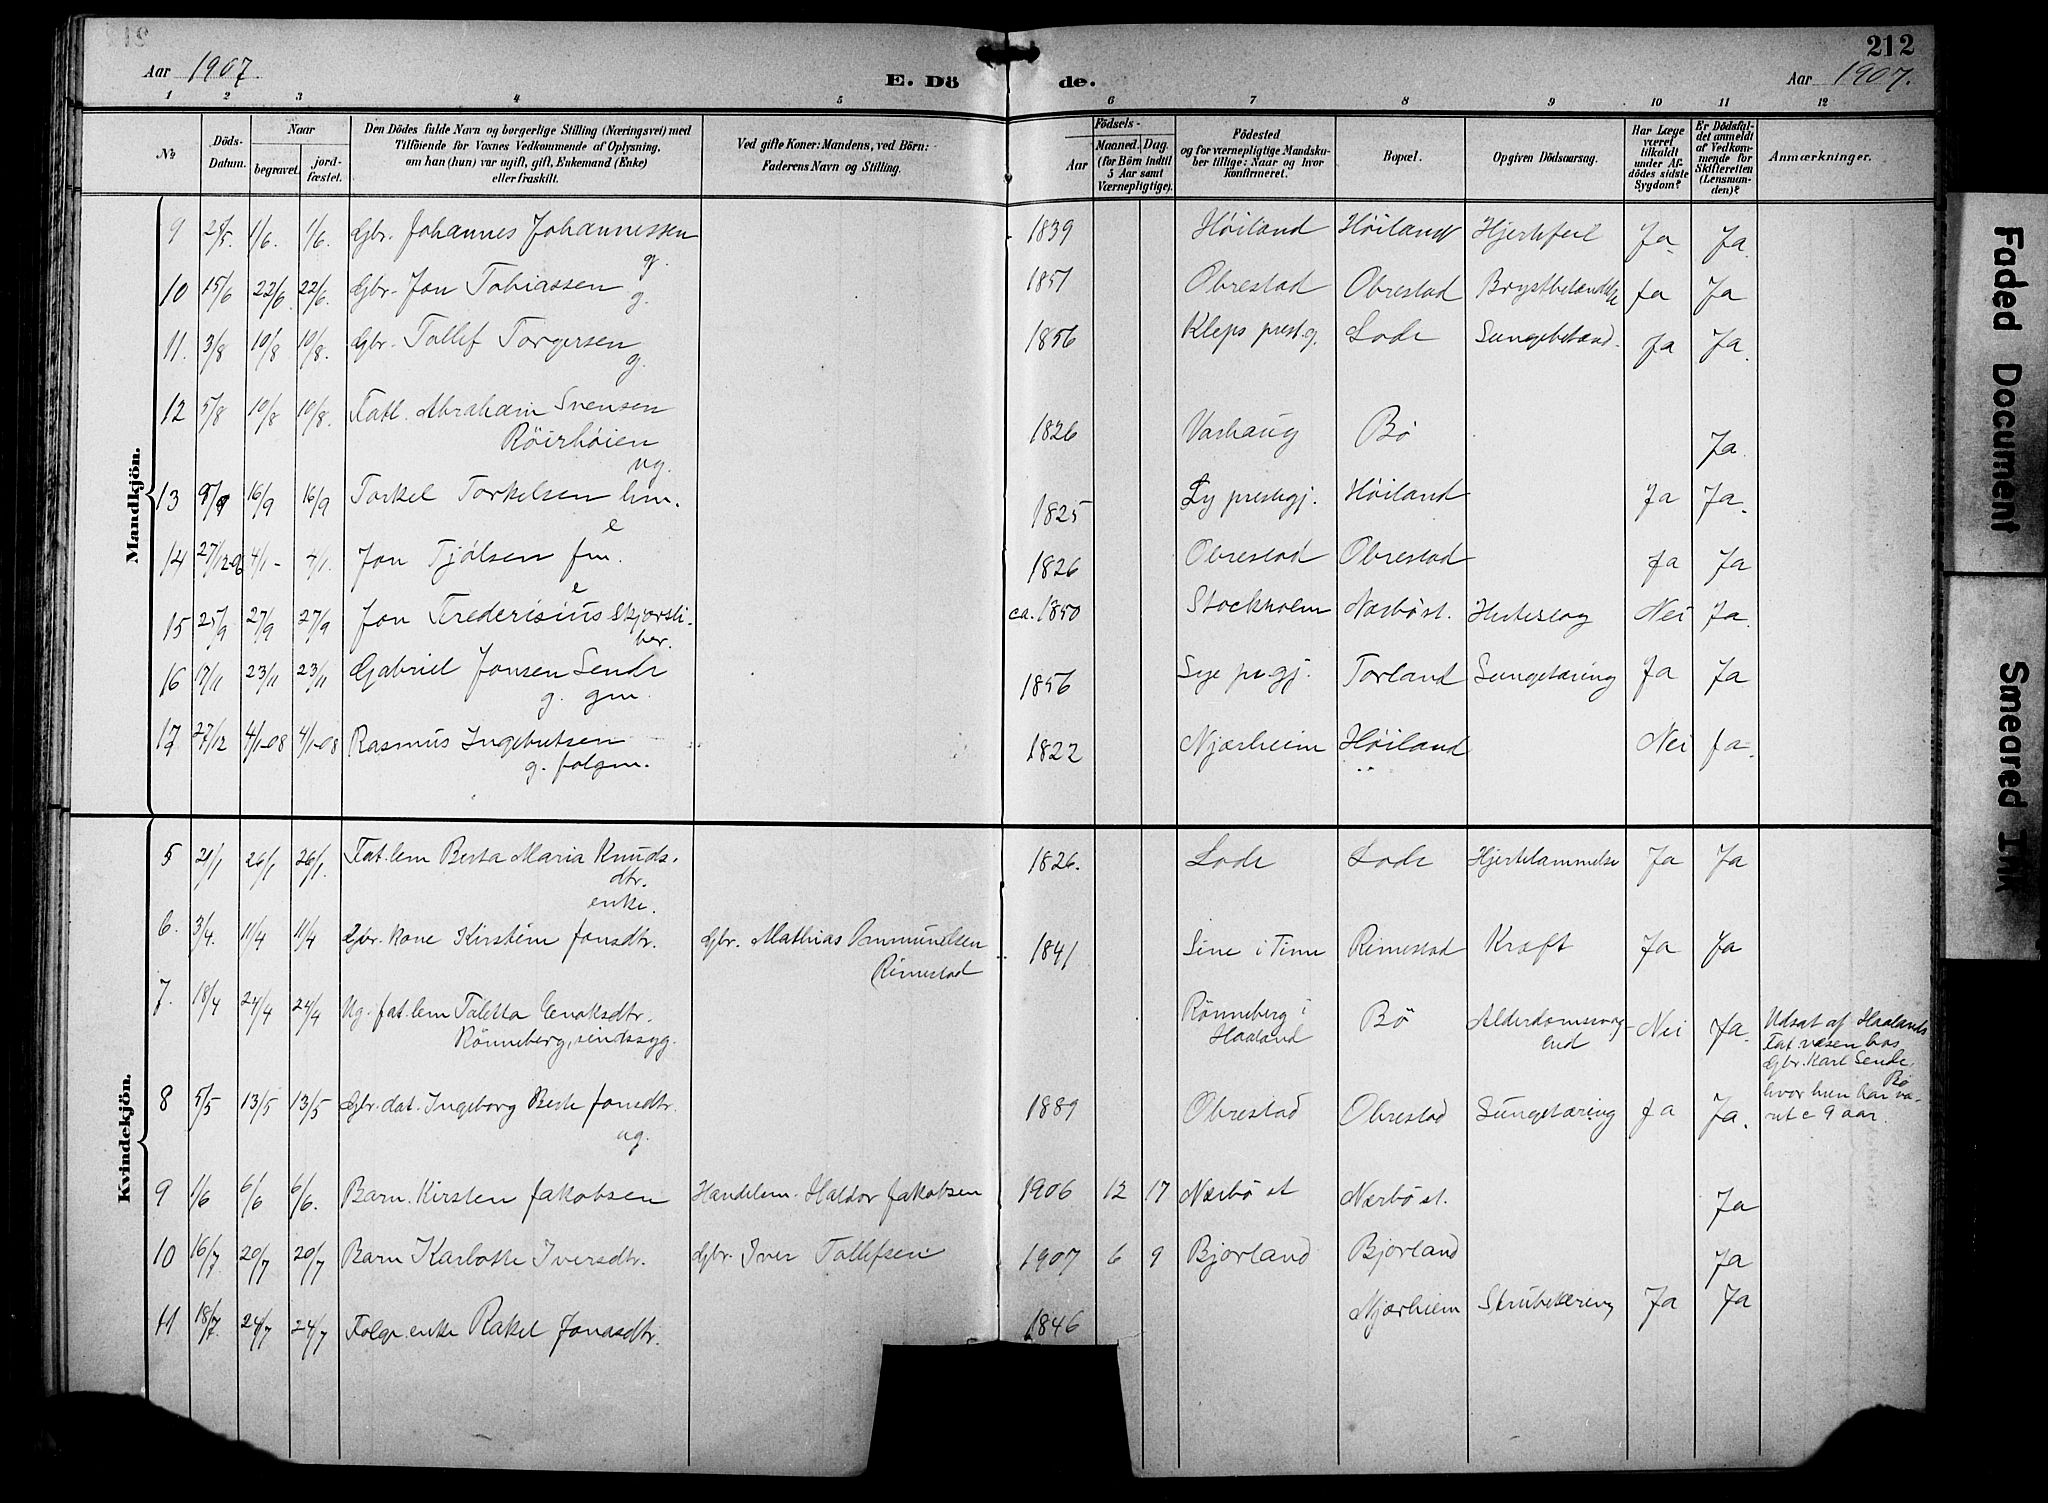 212
Aar 1907.
E. Dö de.
Aar 1907.
1 2 3 4 5 6 7 8 9 10 11 12
No
Döds-Datum.
Naar
begravet.
jord-fæstet.
Den Dödes fulde Navn og borgerlige Stilling (Næringsvei) med
Tilföiende for Voxnes Vedkommende af Oplysning,
om han (hun) var ugift, gift, Enkemand (Enke)
eller fraskilt.
Ved gifte Koner: Mandens, ved Börn:
Faderens Navn og Stilling.
Födsels-
Aar
Maaned. Dag.
(for Börn indtil
5 Aar samt
Værnepligtige).
Födested
og for værnepligtige Mandsku-
ber tillige: Naar og hvor
konfirmeret.
Bopæl.
Opgiven Dödsaarsag.
Har Læge
været
tilkaldt
under Af-
dödes sidste
Sygdom?
Er Dödsfal-
det anmeldt
af Vedkom-
mende for
Skifteretten
(Lensman-
den)?
Anmærkninger.
Mandkjön.
9 28/5. 1/6. 1/6. Gbr. Johannes Johannessen g. 1839 Höiland Höiland Hjertefeil Ja Ja.
10 15/6 22/6. 22/6. Gbr. Jon Tobiassen g. 1851 Obrestad Obrestad Brystbetændelse Ja Ja
11. 3/8 10/8 10/8. Gbr. Tollef Torgersen g. 1856 Kleps prest.g. Lode Lungebetænd. Ja Ja.
12 5/8 10/8 10/8. Fatl. Abraham Svensen
Röirhöien ug. 1826 Varhaug Bö Ja.
13 9/9 16/9 16/9 Torkel Torkelsen lm. e 1825 Ly prestegj. Höiland Ja Ja.
14 27/12-06 4/1- 4/1. Jon Tjölsen fm. e 1826 Obrestad Obrestad Ja Ja
15 25/9 27/9 27/9 Jon Frederisius Skjærsli-
ber. ca. 1850 Stockholm Nærbö st. Hjerteslag Nei Ja.
16 17/11 23/11 23/11 Gabriel Jonsen Sende
g. gm. 1856 Lye pr.gj. Torland Lungetæring Ja Ja
17 27/12 4/1-08 4/1-08 Rasmus Ingebretsen
g. folgm. 1822 Njærheim Höiland Nei Ja.
Kvindekjön.
5 21/1 26/1 26/1. Fat.lem Berta Maria Knuds-
dtr.
enke. 1826. Lode Lode Hjertelammelse Ja Ja
6. 3/4. 11/4 11/4 Gbr. kone Kirstin Jonsdtr. Gbr. Mathias Ommundsen
Rimestad 1841 Line i Time Rimestad Kræft Ja Ja
7. 18/4 24/4 24/4 Ug. fat.lem Taletta Enoksdtr.
Rönneberg, sindssyg. Rönneberg i
Haaland Bö Alderdomssvag-
hed Nei Ja. Udsat af Haalands
Fatvæsen hos
Gbr. Karl Sende,
Bö
hvor hun har væ-
ret c 9 aar.
8 5/5 13/5 13/5 Gbr.dat. Ingeborg Berte Jonsdtr.
ug. 1889 Obrestad Obrestad Lungetæring Ja Ja.
9 1/6 6/6 6/6. Barn. Kirsten Jakobsen Handelsm. Haldor Jakobsen 1906 12 17 Nærbö st Nærbö st. Ja
10 16/7. 20/7 20/7 Barn Karlotte Iversdtr. Gbr. Iver Tollefsen 1907 6 9 Bjorland Bjorland Ja
11 18/7. 24/7 24/7 Folge.enke Rakel Jonasdtr. 1846 Njærheim Strubetæring Ja Ja
Faded Document
Smeared Ink